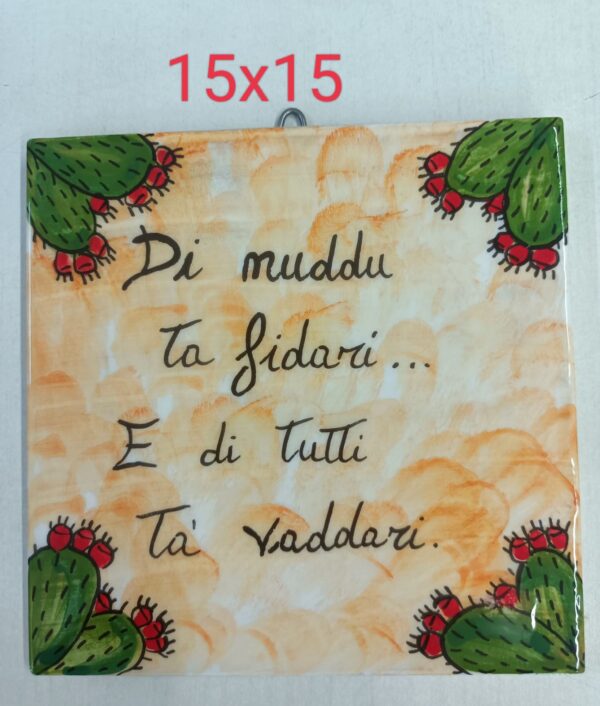 15x15
Di nuddu
ta fidari...
E di tutti
ta' vaddari.